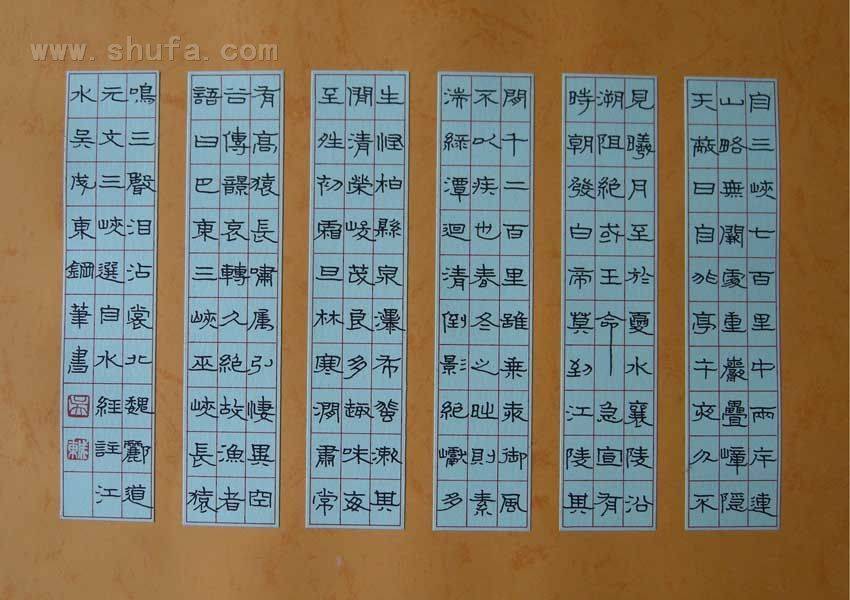 www.shufa.com
自三峽七百里中兩岸連
山略無闕處重巖疊嶂隱
天蔽日自非亭午夜分不
見曦月至於夏水襄陵沿
溯阻絕或王命急宣有
時朝發白帝莫到江陵其
閒千二百里雖乘奔御風
不以疾也春冬之時則素
湍綠潭迴清倒影絕巘多
生怪柏縣泉瀑布飛漱其
閒清榮峻茂良多趣味每
至晴初霜旦林寒澗肅常
有高猿長嘯屬引淒異空
谷傳響哀轉久絕故漁者
曰巴東三峽巫峽長猿
鳴三聲泪沾裳北魏酈道
元文三峽選自水經註江
水吳東鋼筆書